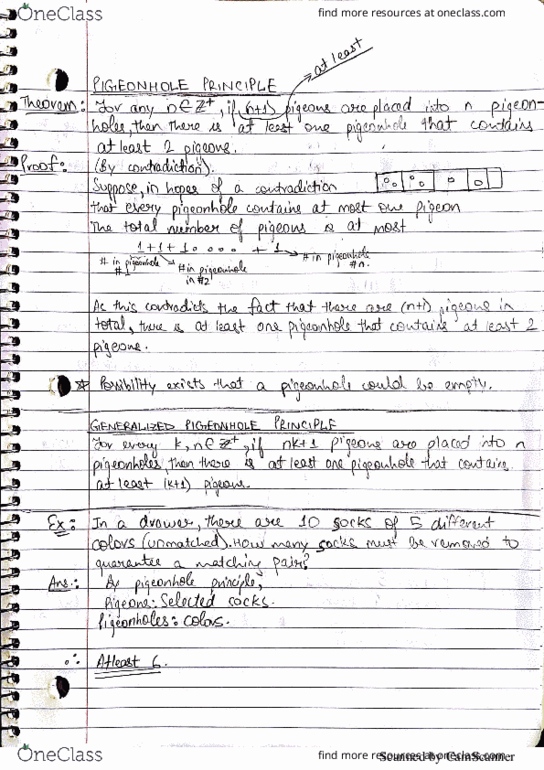 OneClass
find more resources at oneclass.com
at least
PIGEONHOLE PRINCIPLE
Theorem: For any n∈Z⁺, if (n+1) pigeons are placed into n pigeon-
holes, then there is at least one pigeonhole that contains
at least 2 pigeons.
Proof: (By contradiction).
Suppose, in hopes of a contradiction
that every pigeonhole contains at most one pigeon
The total number of pigeons is at most
1+1+1 .... + 1
# in pigeonhole #1
# in pigeonhole in #2
# in pigeonhole #n.
As this contradicts the fact that there are (n+1) pigeons in
total, there is at least one pigeonhole that contains at least 2
pigeons.
* Possibility exists that a pigeonhole could be empty.
GENERALIZED PIGEONHOLE PRINCIPLE
For every k,n∈Z⁺, if nk+1 pigeons are placed into n
pigeonholes, then there is at least one pigeonhole that contains
at least (k+1) pigeons.
Ex: In a drawer, there are 10 socks of 5 different
colors (unmatched). How many socks must be removed to
guarantee a matching pair?
Ans.: By pigeonhole principle,
Pigeons: Selected socks.
Pigeonholes: colors.
∴ Atleast 6.
OneClass
find more resources at oneclass.com
Scanned by CamScanner